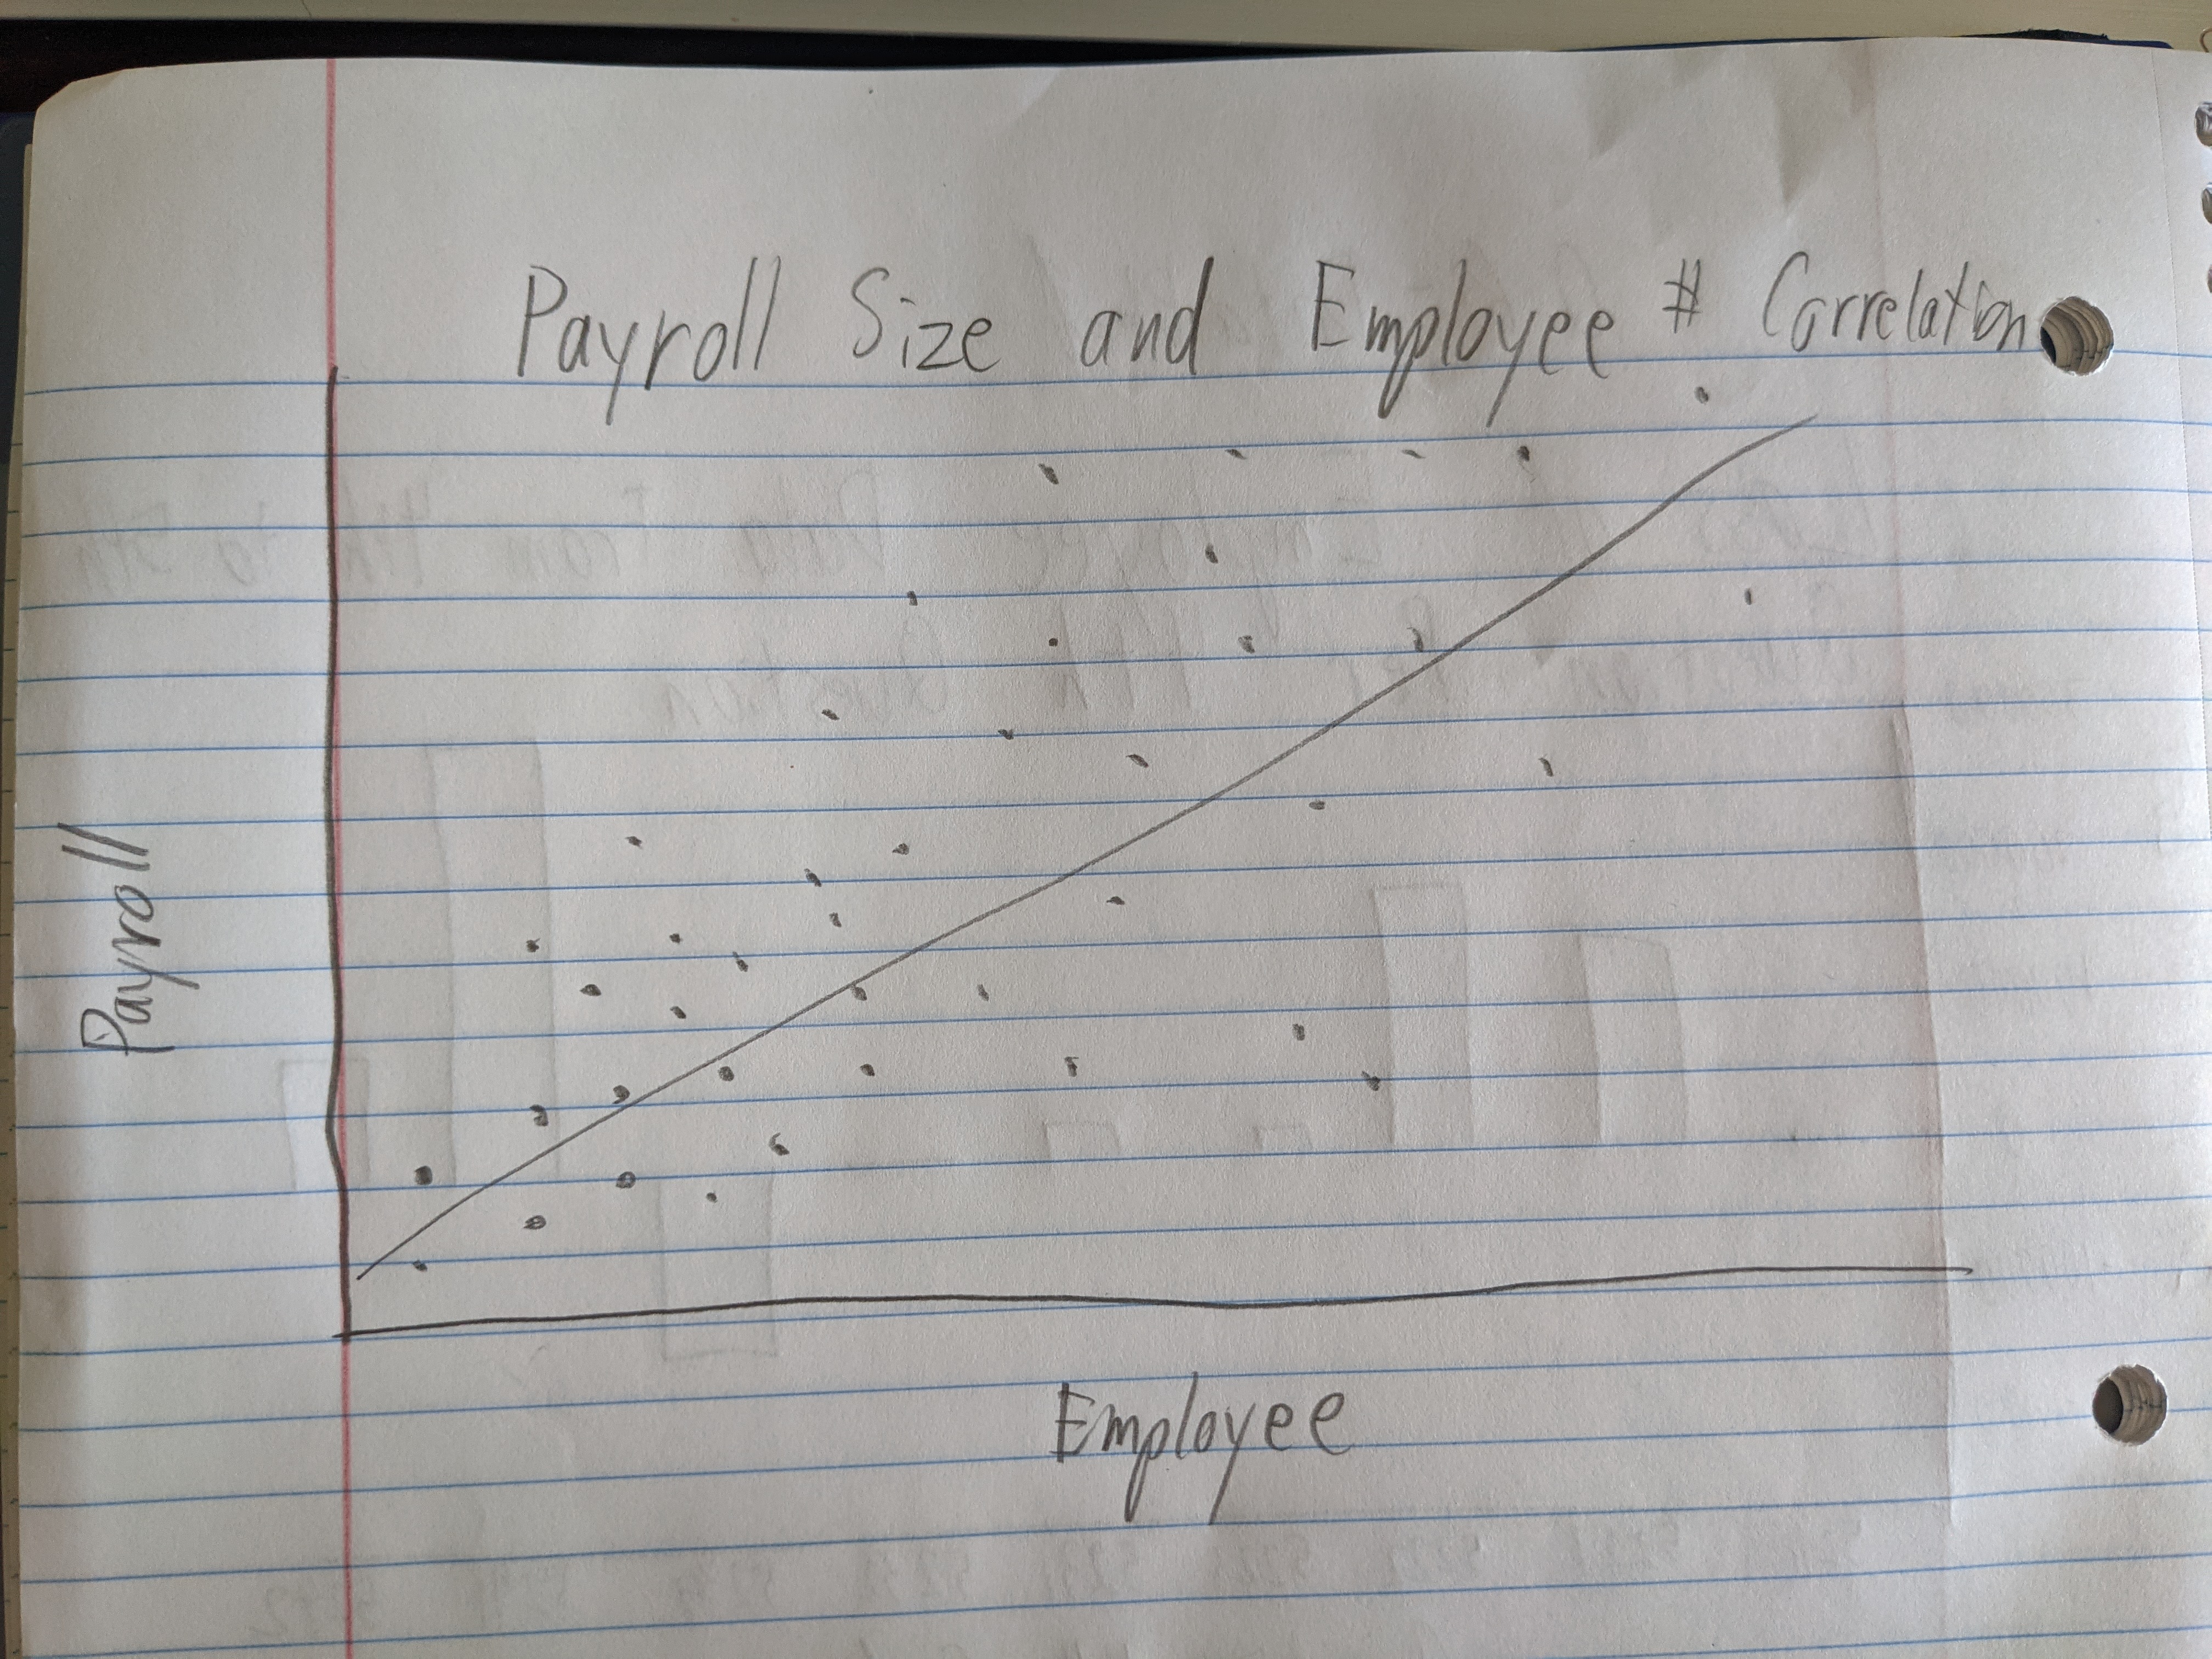 Payroll Size and Employee # Correlation
Payroll
Employee